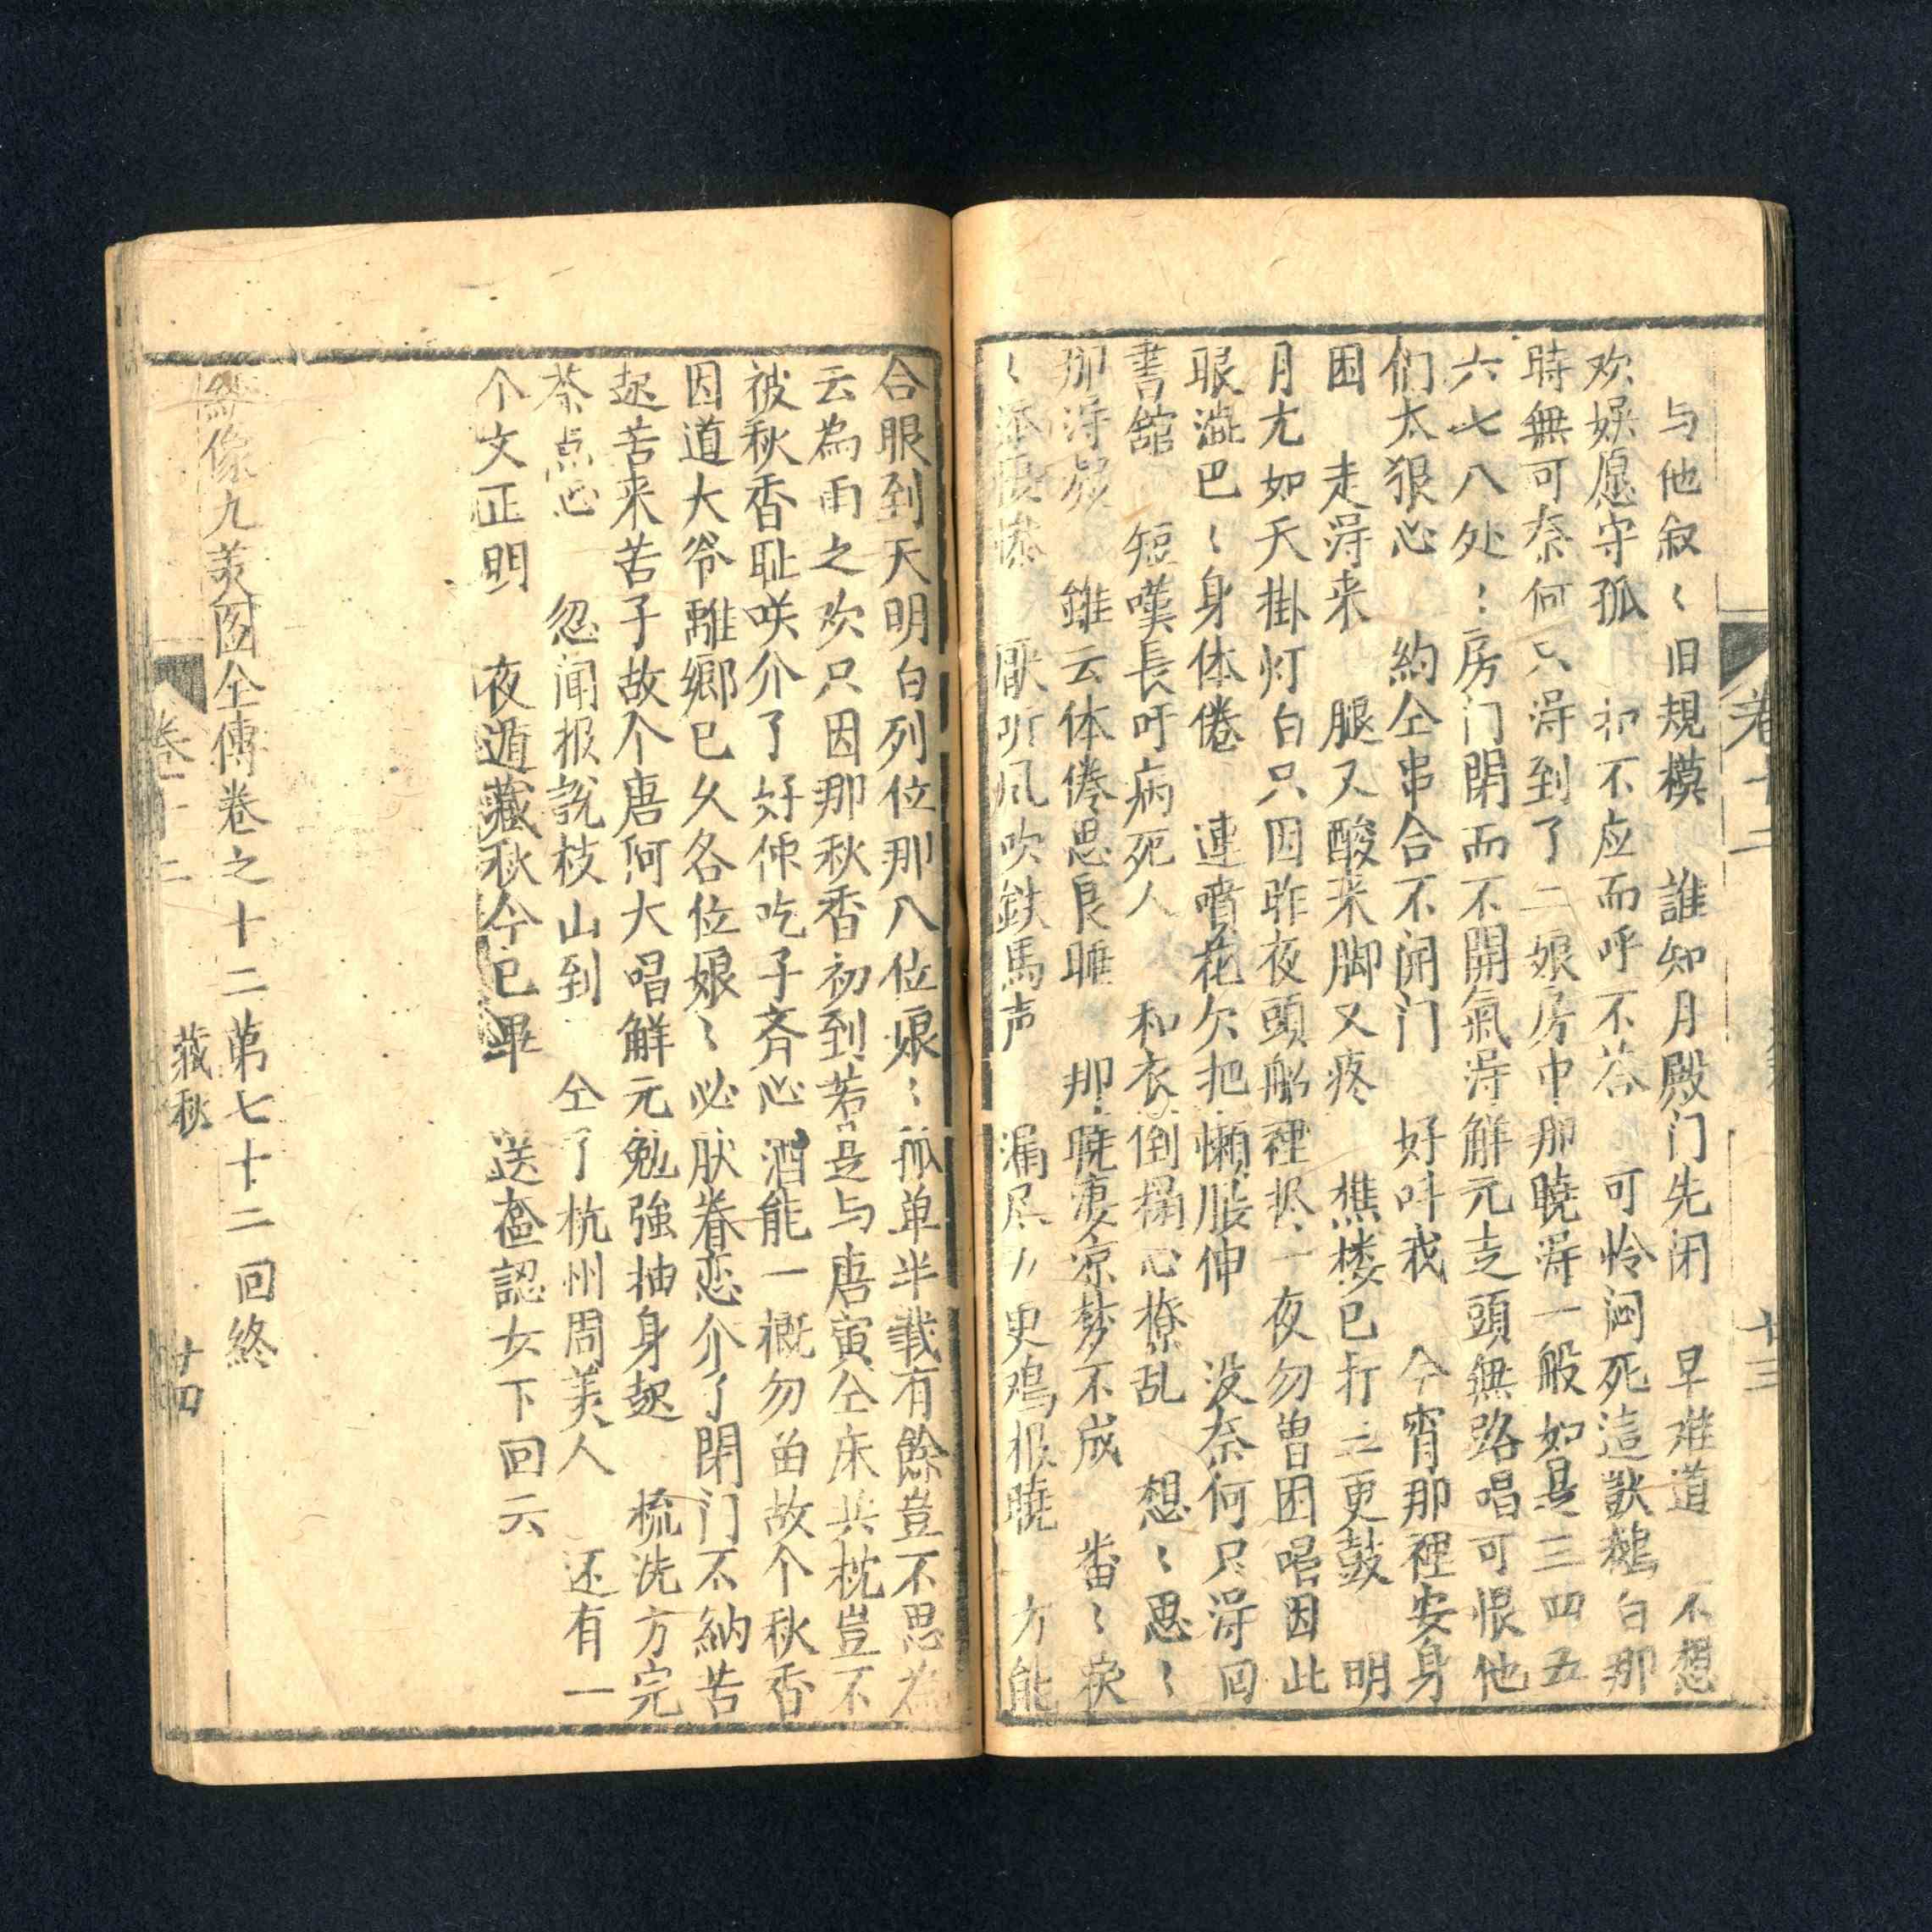 与他叙〻旧規模　誰知月殿门先闭　早难道　不想
欢娱愿守孤　扣不应而呼不荅　可怜闷死這獃鵝白那
時無可奈何只淂到了二娘房中那曉淂一般如是三四五
六七八处〻房门閉而不開氣淂觧元走頭無路唱可恨他
们太狠心　約仝串合不开门　好呌我　今宵那裡安身
困　走淂来　腿又酸来脚又疼　樵楼已打三更鼓　明
月尤如天掛灯白只因昨夜頭船裡　一夜勿曾困唱因此
眼澁巴〻身体倦　連噴花欠把懒腰伸　没奈何只淂回
書舘　短嘆長吁病死人　和衣倒榻心撩乱　想〻思〻
那淂　雖云体倦思良睡　却曉凄凉梦不成　番〻
〻添　厭听风吹鉄馬声　漏尽五更鸡报曉　方能
合眼到天明白列位那八位娘〻孤单半載有餘豈不思為
云為雨之欢只因那秋香初到若是与唐寅仝床共枕豈不
被秋香耻咲介了好伓吃子斉心酒能一概勿畄故个秋香
因道大爷離鄉已久各位娘〻必肰眷恋介了閉门不納苦
起苦来苦子故个唐伯大唱觧元勉強抽身起　梳洗方完
茶点心　忽闻报説枝山到　仝了杭州周美人　还有一
个文正明　夜遁藏秋今已畢　送盦認女下回云
繪像九美图仝傳卷之十二第七十二回終
卷十二　廿三
卷十二　藏秋　廿四